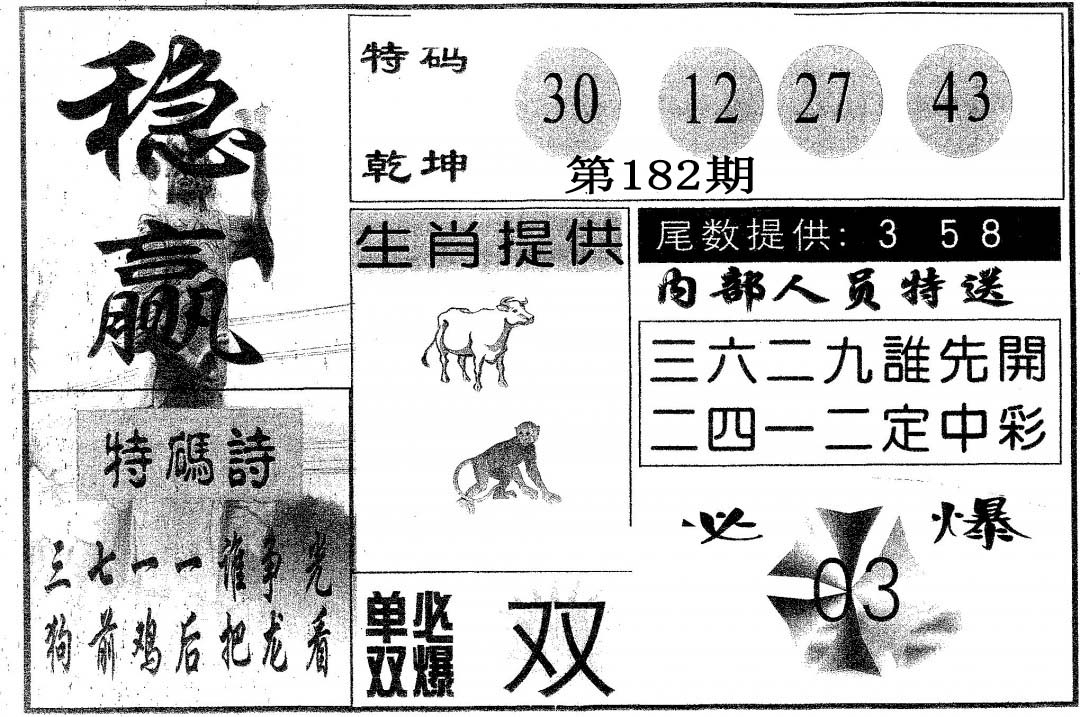 稳赢
特码 30 12 27 43
乾坤 第182期
生肖提供
尾数提供: 3 58
内部人员特送
三六二九誰先開
二四一二定中彩
特碼詩
三七一一谁争光
狗前鸡后把龙看
必爆
03
单双必爆
双